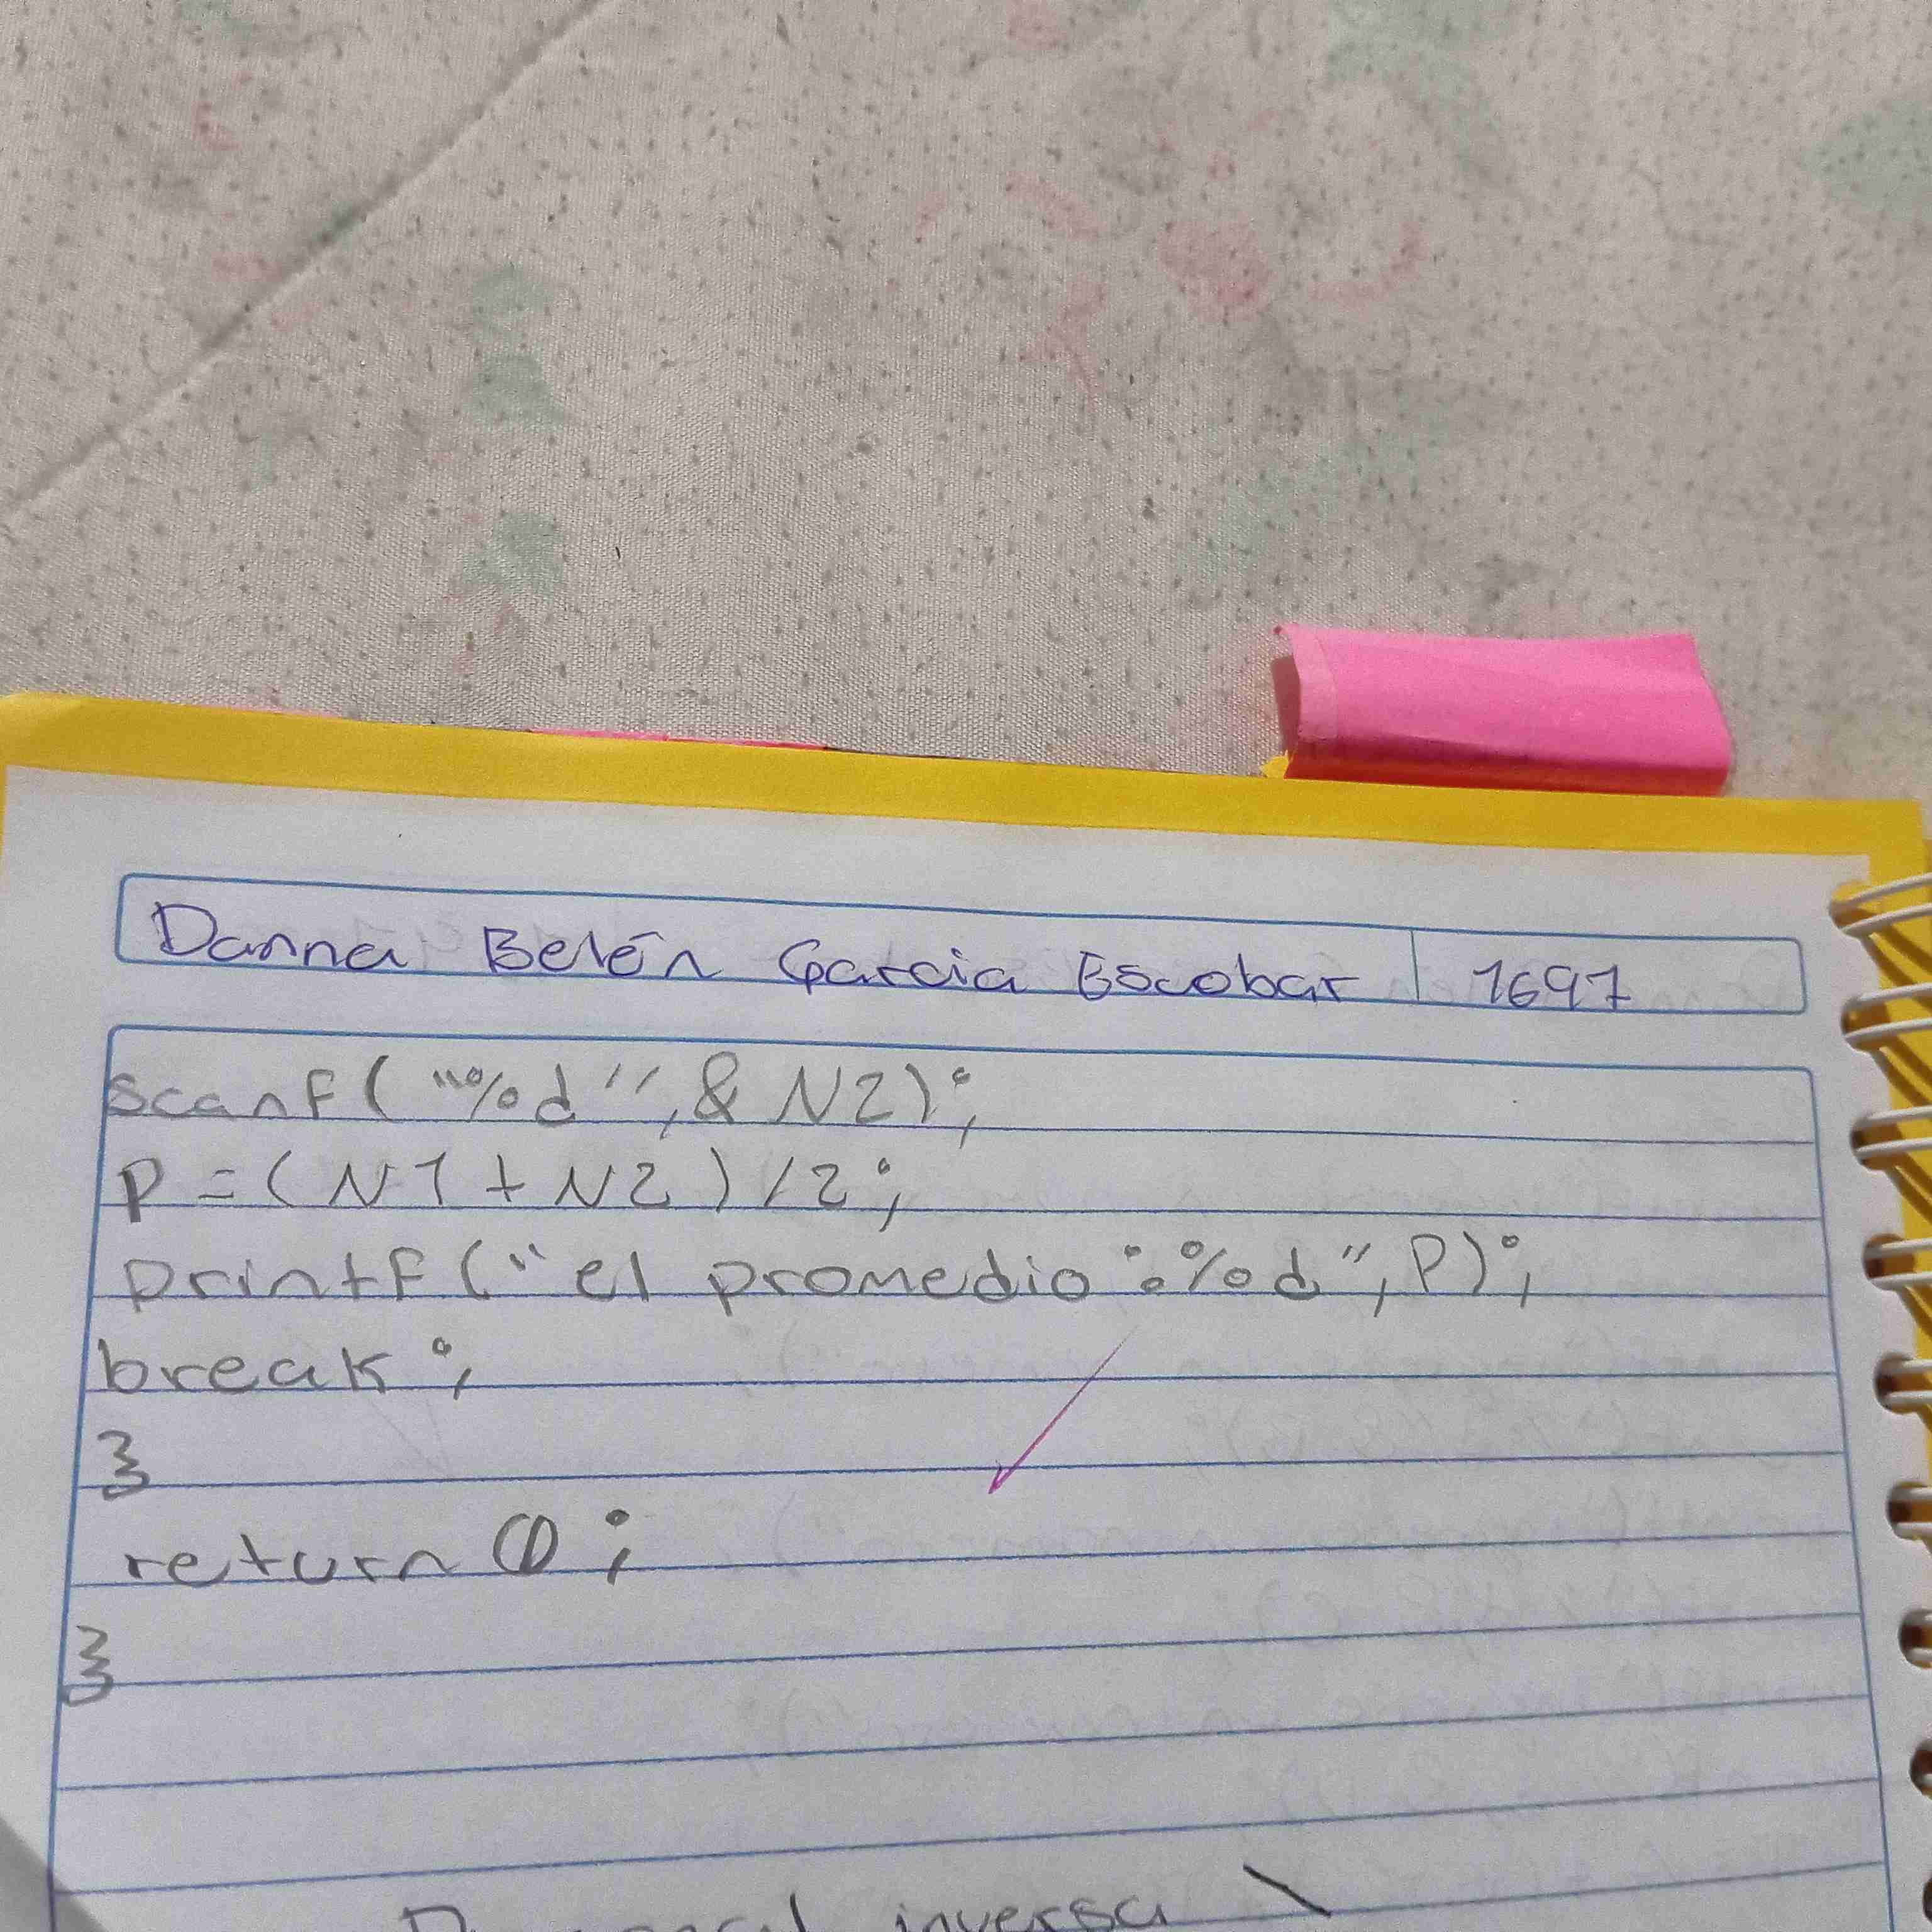 Danna Belén Garcia Escobar 1697
scanf("%d",& N2);
P=(N1+N2)/2;
printf("el promedio:%d",P);
break;
}
return 0;
}
inversa